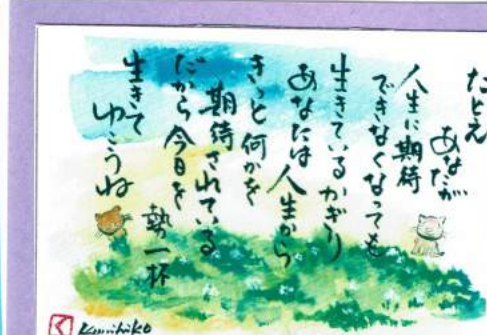 たとえ
あなたが
人生に期待
できなくなっても
生きているかぎり
あなたは人生から
きっと何かを
期待されている
だから今日を
勢一杯
生きて
ゆこうね
く
Kunihiko